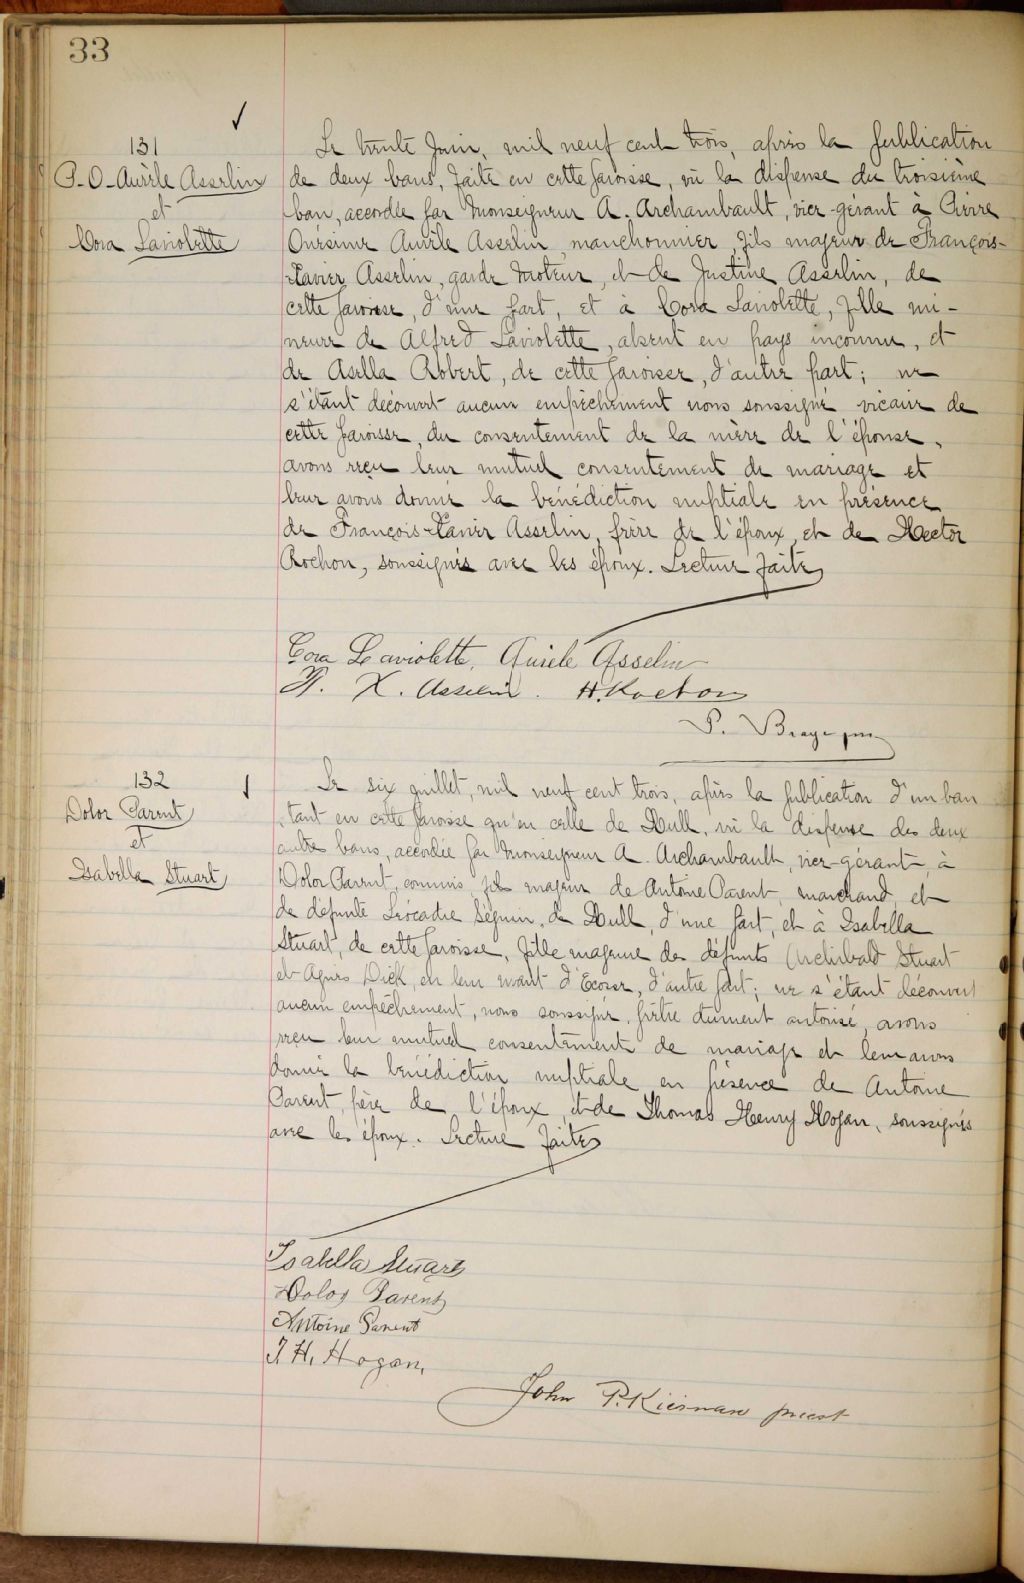 33
131
P-O-Aurèle Asselin
et
Cora Laviolette
Le trente Juin, mil neuf cent trois, après la publication
de deux bans, faite en cette paroisse, vu la dispense du troisième
ban, accordée par Monseigneur A. Archambault, vice-gérant à Pierre
Onésime Aurèle Asselin, manchonnier, fils majeur de François-
Xavier Asselin, garde moteur, et de Justine Asselin, de
cette paroisse, d'une part, et à Cora Laviolette, fille mi-
neure de Alfred Laviolette, absent en pays inconnu, et
de Asella Robert, de cette paroisse, d'autre part; ne
s'étant découvert aucun empêchement nous soussigné vicaire de
cette paroisse, du consentement de la mère de l'épouse,
avons reçu leur mutuel consentement de mariage et
leur avons donné la bénédiction nuptiale en présence
de François-Xavier Asselin, frère de l'époux, et de Hector
Rochon, soussignés avec les époux. Lecture faite
Cora Laviolette, Aurèle Asselin
F. X. Asselin. H. Rochon
P. ptre
132
Dolor Parent
et
Isabella Stuart
Le six juillet, mil neuf cent trois, après la publication d'un ban
tant en cette paroisse qu'en celle de Hull, vu la dispense des deux
autres bans, accordée par Monseigneur A. Archambault, vice-gérant, à
Dolor Parent, commis, fils majeur de Antoine Parent, marchand, et
de défunte Léocadie Séguin, de Hull, d'une part, et à Isabella
Stuart, de cette paroisse, fille majeure des défunts Archibald Stuart
et Agnes Dick, en leur vivant d'Ecosse, d'autre part; ne s'étant découvert
aucun empêchement, nous soussigné, prêtre dument autorisé, avons
reçu leur mutuel consentement de mariage et leur avons
donné la bénédiction nuptiale en présence de Antoine
Parent, père de l'époux, et de Thomas Henry Hogan, soussignés
avec les époux. Lecture faite
Isabella Stuart
Dolor Parent
Antoine Parent
T. H. Hogan,
John P. Kiernan priest